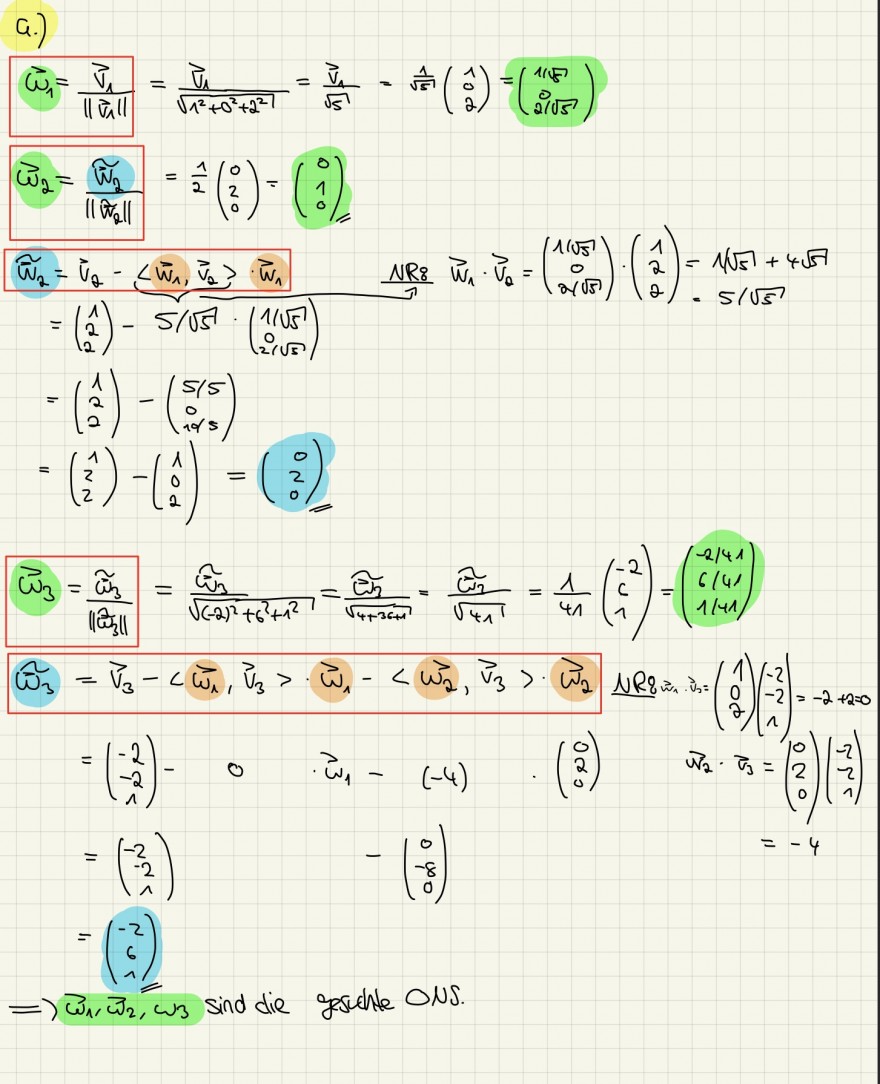 a.)
w⃗₁ = v⃗₁ / ||v⃗₁|| = v⃗₁ / √(1²+0²+2²) = v⃗₁ / √5 = 1/√5 (1 0 2) = (1/√5 0 2/√5)
w⃗₂ = w̃₂ / ||w̃₂|| = 1/2 (0 2 0) = (0 1 0)
w̃₂ = v⃗₂ - <w⃗₁, v⃗₂> · w⃗₁ NR: w⃗₁ · v⃗₂ = (1/√5 0 2/√5) · (1 2 2) = 1/√5 + 4√5
= 5/√5
= (1 2 2) - 5/√5 · (1/√5 0 2/√5)
= (1 2 2) - (5/5 0 10/5)
= (1 2 2) - (1 0 2) = (0 2 0)
w⃗₃ = w̃₃ / ||w̃₃|| = w̃₃ / √((-2)²+6²+1²) = w̃₃ / √(4+36+1) = w̃₃ / √41 = 1/41 (-2 6 1) = (-2/41 6/41 1/41)
w̃₃ = v⃗₃ - <w⃗₁, v⃗₃> · w⃗₁ - <w⃗₂, v⃗₃> · w⃗₂ NR: w⃗₁ · v⃗₃ = (1 0 2) (-2 -2 1) = -2+2=0
= (-2 -2 1) - 0 · w⃗₁ - (-4) · (0 2 0) w⃗₂ · v⃗₃ = (0 2 0) (-2 -2 1)
= -4
= (-2 -2 1) - (0 -8 0)
= (-2 6 1)
=> w⃗₁, w⃗₂, w₃ sind die gesuchte ONS.